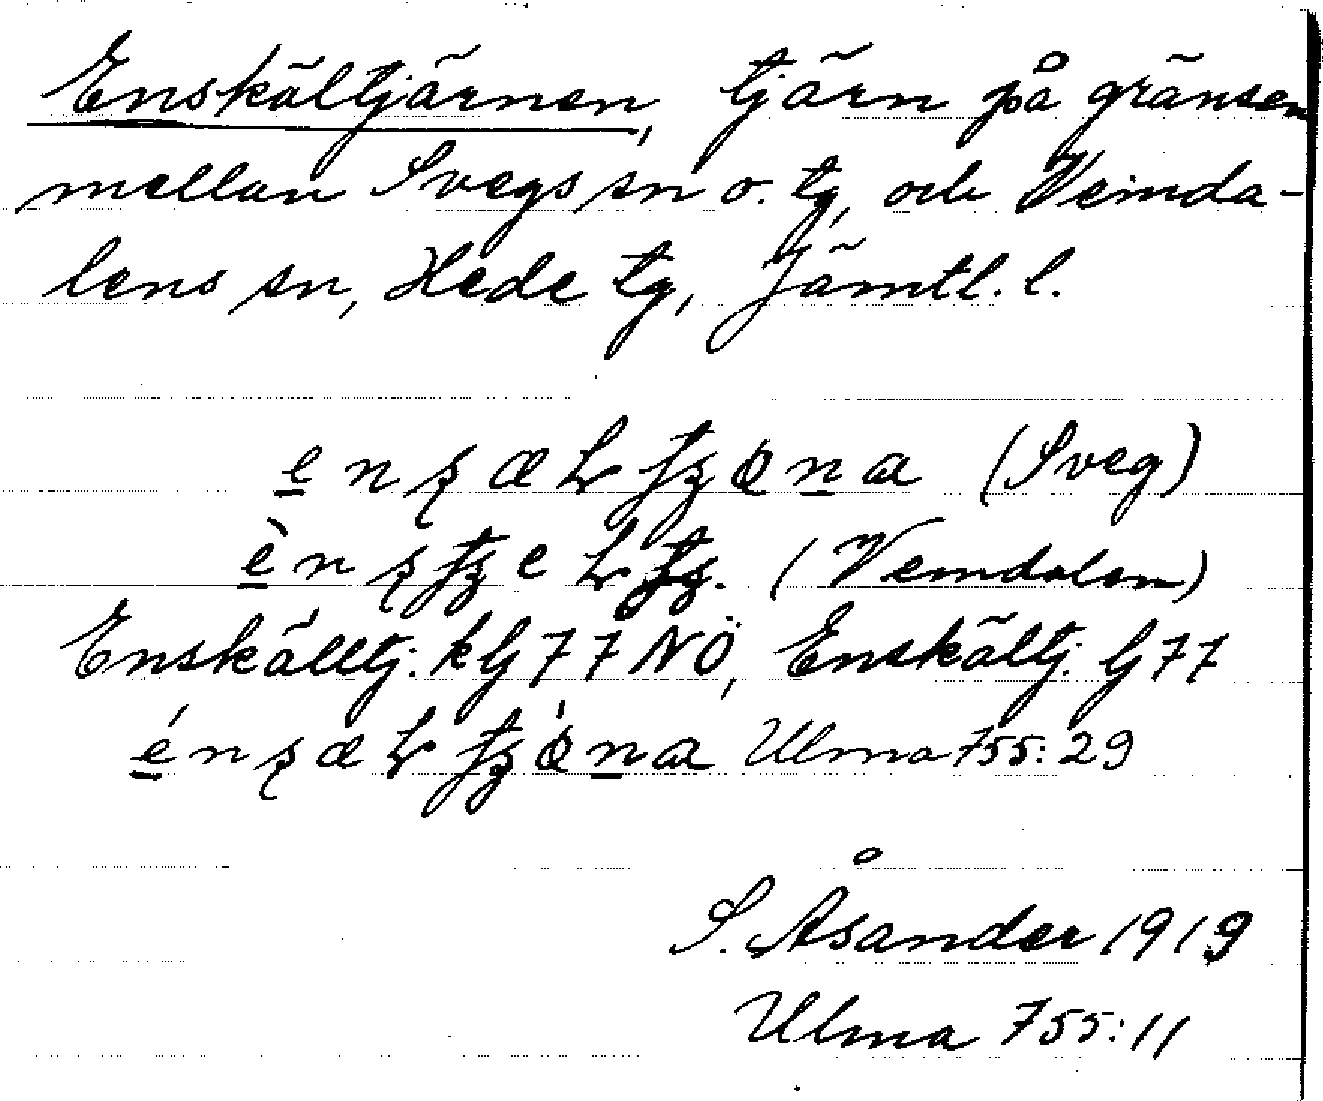 Enskältjärnen, tjärn på gränsen
mellan Svegs sn o. tg, och Vemda-
lens sn, Hede tg, Jämtl. l.
(Sveg)
(Vemdalen)
Enskälltj. kG 77 NÖ, Enskältj. G 77
Ulma 755:29
S. Åsander 1919
Ulma 755:11